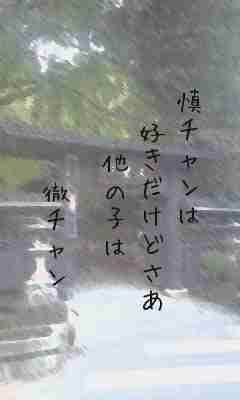 慎チャンは
好きだけどさあ
他の子は
徹チャン